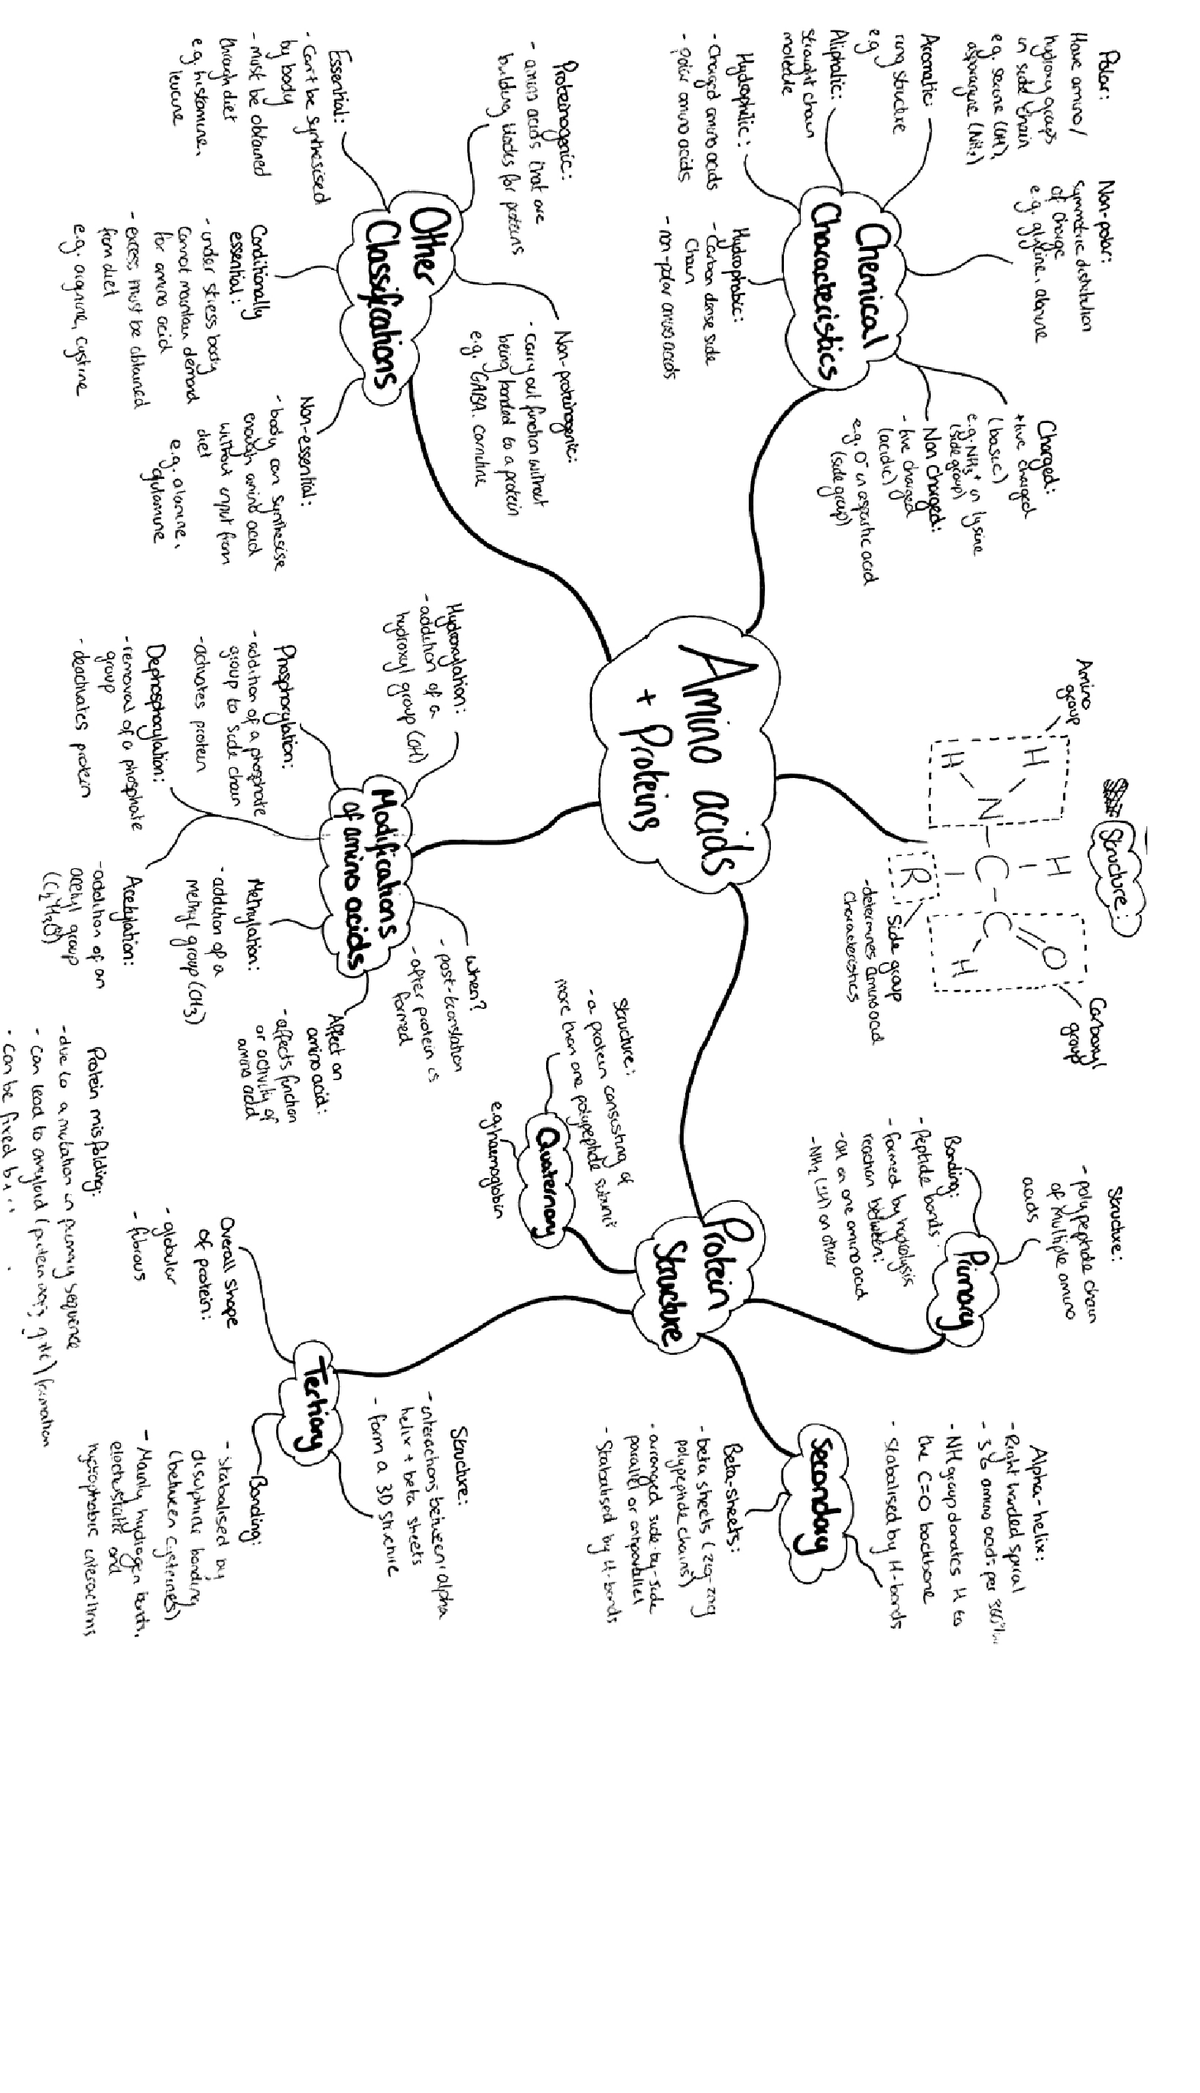 Amino acids
+ Proteins
Chemical
Characteristics
Polar:
Have amino/
hydroxy groups
in side chain
e.g. serine (OH),
asparagine (NH₂)
Non-polar:
symmetric distribution
of charge
e.g. glycine, alanine
Aromatic:
ring structure
e.g
Aliphatic:
straight chain
molecule
Hydrophilic:
- Charged amino acids
- Polar amino acids
Hydrophobic:
- Carbon dense side
chain
- non-polar amino acids
Charged:
+tive charged
(basic)
e.g. NH₃⁺ in lysine
(side group)
Non charged:
- tive charged
(acidic)
e.g. O⁻ in aspartic acid
(side group)
Structure:
Amino
group
H
H
N - C - C
H
O
H
R
Carboxyl
group
Side group
- determines amino acid
characteristics
Other
Classifications
Proteinogenic:
- amino acids that are
building blocks for proteins
Non-proteinogenic:
- carry out function without
being bonded to a protein
e.g. GABA, carnitine
Essential:
- Can't be synthesised
by body
- must be obtained
through diet
e.g. histamine,
leucine
Conditionally
essential:
- under stress body
cannot maintain demand
for amino acid
- excess must be obtained
from diet
e.g. arginine, cystine
Non-essential:
- body can synthesise
enough amino acid
without input from
diet
e.g. alanine,
glutamine
Modifications
of amino acids
Hydroxylation:
- addition of a
hydroxyl group (OH)
Phosphorylation:
- addition of a phosphate
group to side chain
- activates protein
Dephosphorylation:
- removal of a phosphate
group
- deactivates protein
Acetylation:
- addition of an
acetyl group
Methylation:
- addition of a
methyl group (CH3)
When?
- post-translation
- after protein is
formed
Affect on
amino acid:
- affects function
or activity of
amino acid
Protein
Structure
Primary
Structure:
- polypeptide chain
of multiple amino
acids
Bonding:
- Peptide bonds
- formed by hydrolysis
reaction between:
- OH on one amino acid
- NH₂ (H) on other
Secondary
Alpha-helix:
- Right handed spiral
- 3.6 amino acids per
- NH group donates H to
the C=O backbone
- stabalised by H-bonds
Beta-sheets:
- beta sheets (zig-zag
polypeptide chains)
- arranged side-by-side
parallel or antiparallel
- Stabalised by H-bonds
Tertiary
Structure:
- interactions between alpha
helix + beta sheets
- form a 3D structure
Bonding:
- Stabalised by
disulphide bonding
(between cysteines)
- Mainly hydrogen bonds,
electrostatic and
hydrophobic interactions
Overall shape
of protein:
- globular
- fibrous
Quaternary
Structure:
- a protein consisting of
more than one polypeptide subunit
e.g haemoglobin
Protein misfolding:
- due to a mutation in primary sequence
- can lead to amyloid formation
- can be fixed